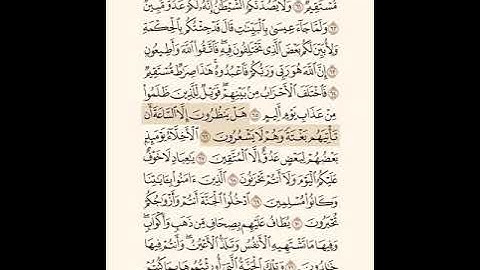 مُّسْتَقِيمٌ ٦١ وَلَا يَصُدَّنَّكُمُ ٱلشَّيْطَٰنُ إِنَّهُۥ لَكُمْ عَدُوٌّ مُّبِينٌ
٦٢ وَلَمَّا جَآءَ عِيسَىٰ بِٱلْبَيِّنَٰتِ قَالَ قَدْ جِئْتُكُم بِٱلْحِكْمَةِ
وَلِأُبَيِّنَ لَكُم بَعْضَ ٱلَّذِى تَخْتَلِفُونَ فِيهِ فَٱتَّقُوا۟ ٱللَّهَ وَأَطِيعُونِ
٦٣ إِنَّ ٱللَّهَ هُوَ رَبِّى وَرَبُّكُمْ فَٱعْبُدُوهُ هَٰذَا صِرَٰطٌ مُّسْتَقِيمٌ
٦٤ فَٱخْتَلَفَ ٱلْأَحْزَابُ مِنۢ بَيْنِهِمْ فَوَيْلٌ لِّلَّذِينَ ظَلَمُوا۟
مِنْ عَذَابِ يَوْمٍ أَلِيمٍ ٦٥ هَلْ يَنظُرُونَ إِلَّا ٱلسَّاعَةَ أَن
تَأْتِيَهُم بَغْتَةً وَهُمْ لَا يَشْعُرُونَ ٦٦ ٱلْأَخِلَّآءُ يَوْمَئِذٍۭ
بَعْضُهُمْ لِبَعْضٍ عَدُوٌّ إِلَّا ٱلْمُتَّقِينَ ٦٧ يَٰعِبَادِ لَا خَوْفٌ
عَلَيْكُمُ ٱلْيَوْمَ وَلَآ أَنتُمْ تَحْزَنُونَ ٦٨ ٱلَّذِينَ ءَامَنُوا۟ بِـَٔايَٰتِنَا
وَكَانُوا۟ مُسْلِمِينَ ٦٩ ٱدْخُلُوا۟ ٱلْجَنَّةَ أَنتُمْ وَأَزْوَٰجُكُمْ
تُحْبَرُونَ ٧٠ يُطَافُ عَلَيْهِم بِصِحَافٍ مِّن ذَهَبٍ وَأَكْوَابٍ
وَفِيهَا مَا تَشْتَهِيهِ ٱلْأَنفُسُ وَتَلَذُّ ٱلْأَعْيُنُ وَأَنتُمْ فِيهَا
خَٰلِدُونَ ٧١ وَتِلْكَ ٱلْجَنَّةُ ٱلَّتِىٓ أُورِثْتُمُوهَا بِمَا كُنتُمْ